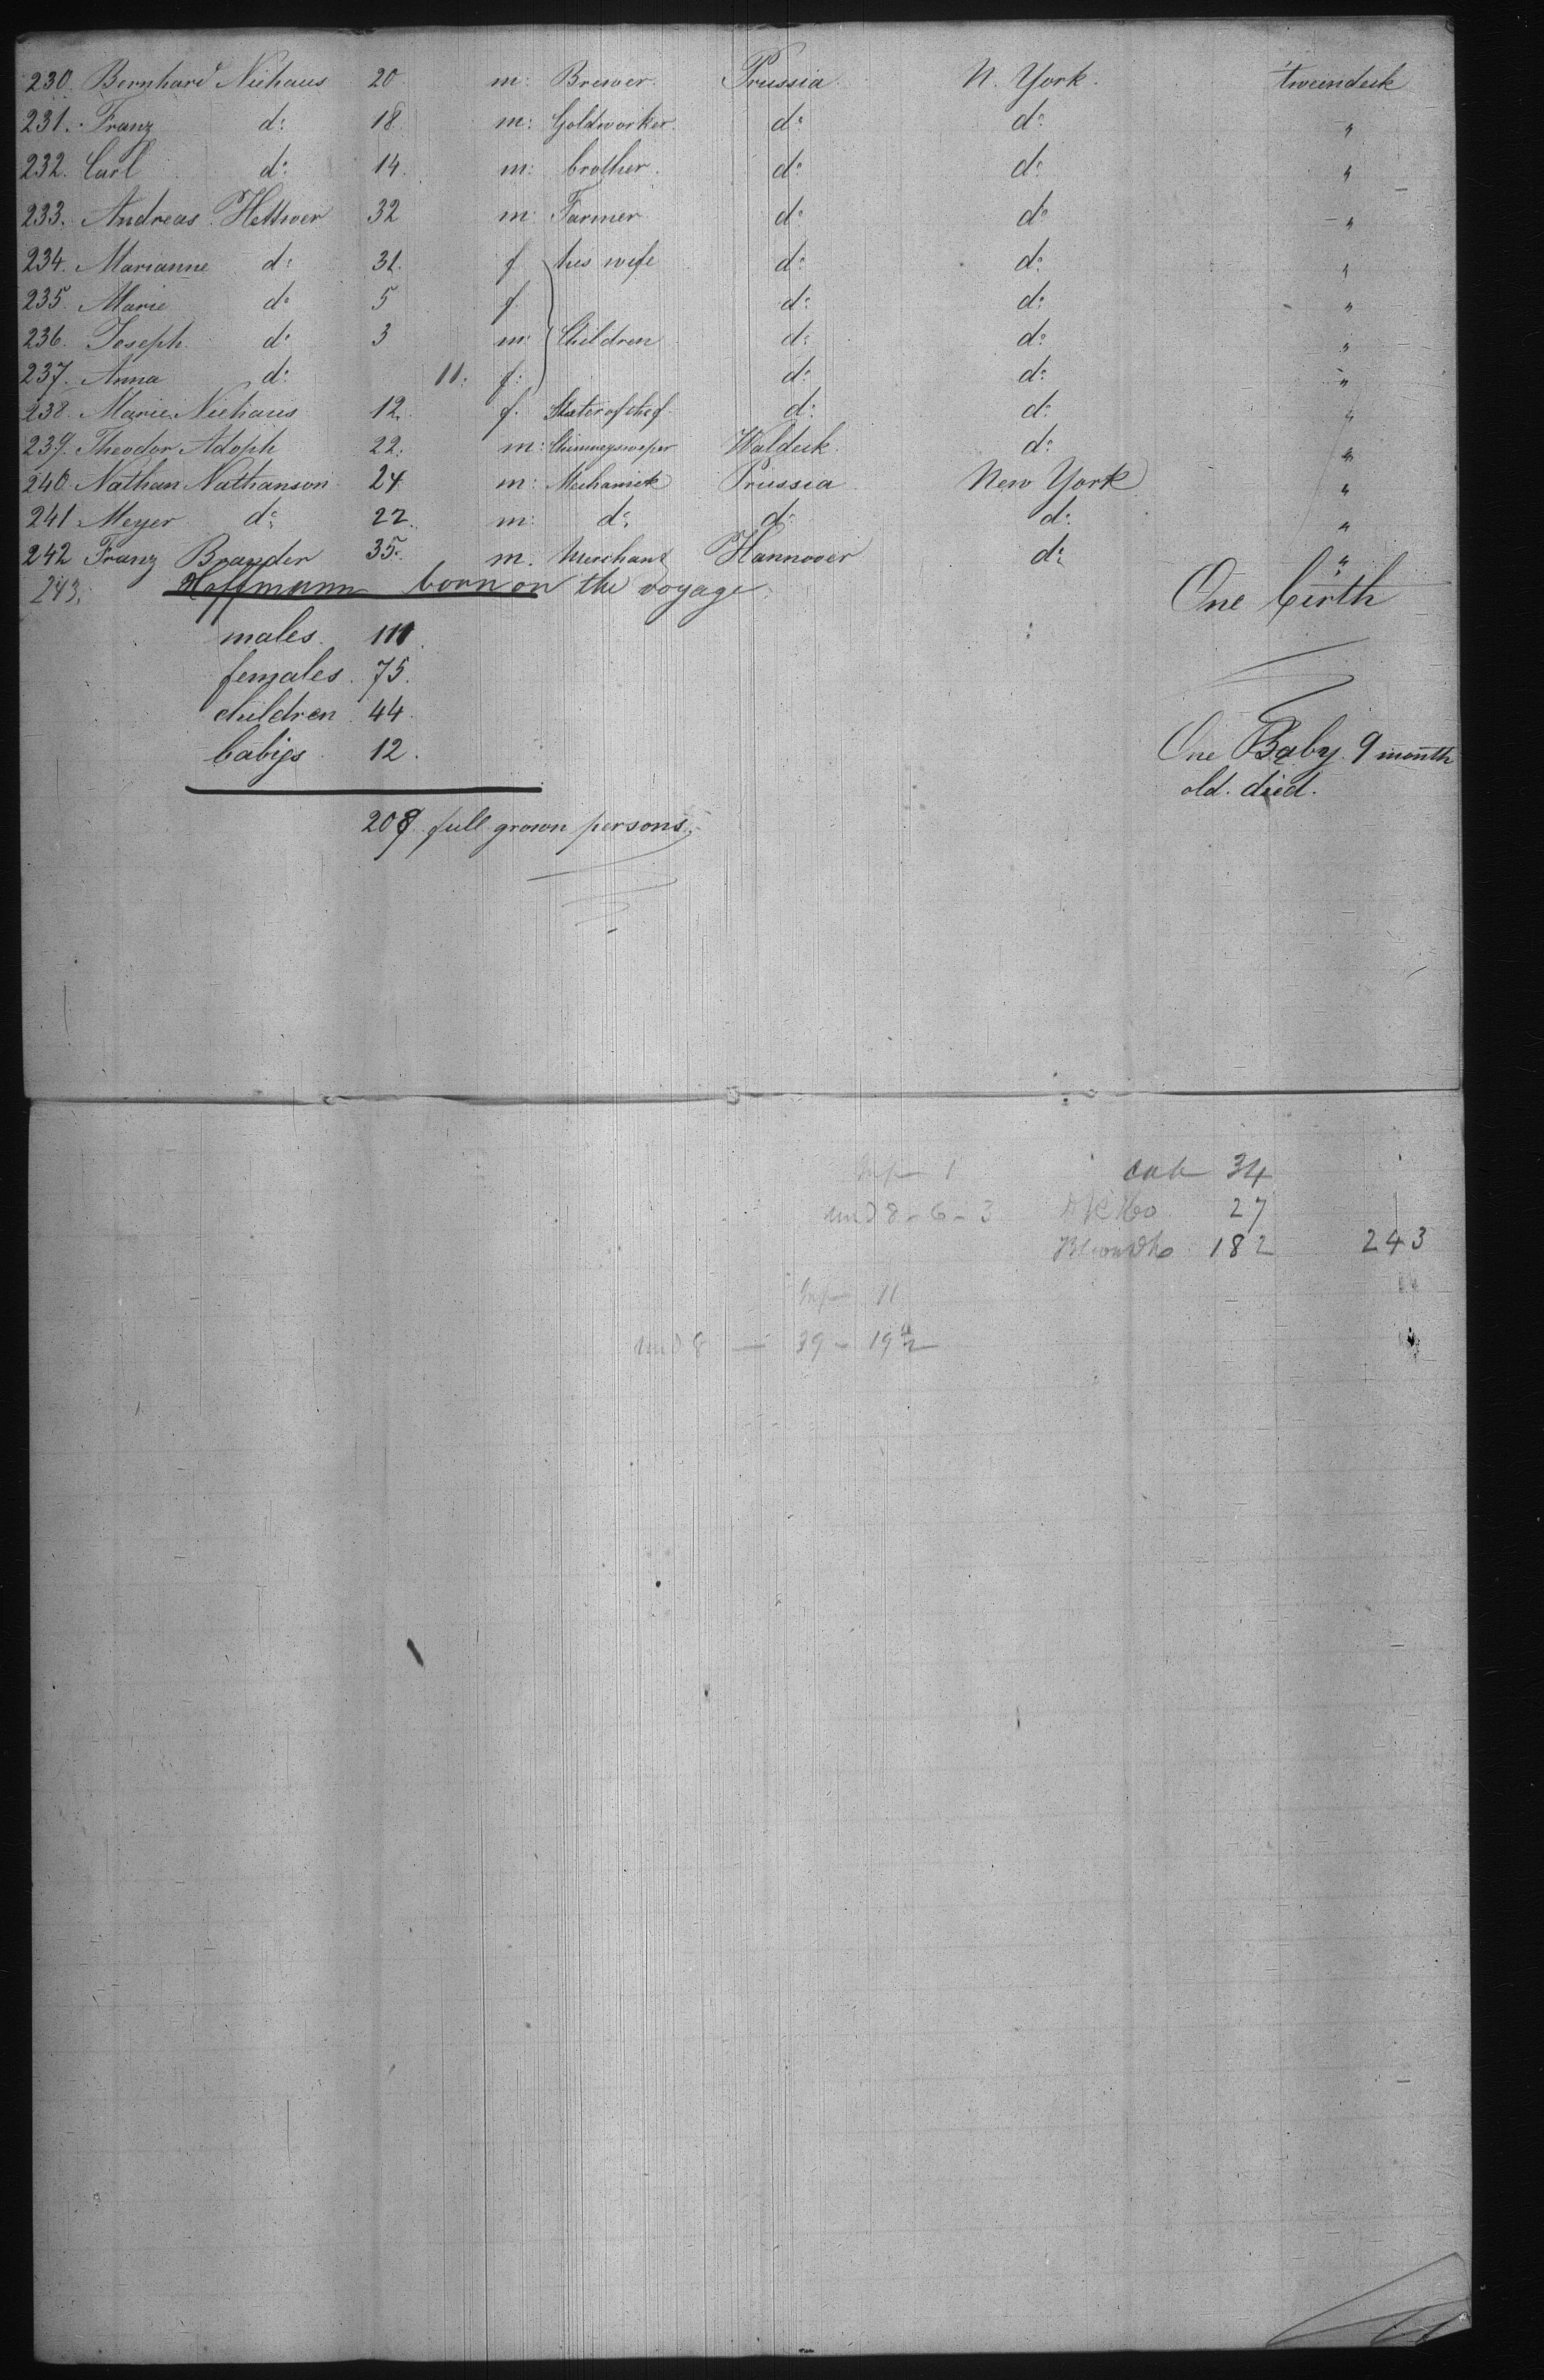 230. Bernhard Niehaus 20 m: Brewer. Prussia N. York. tweendeck
231. Franz do: 18. m: Goldworker. do: do: "
232. Carl do: 14. m: brother. do: do: "
233. Andreas Hettwer 32 m: Farmer do: do: "
234. Marianne do: 31. f his wife do: do: "
235. Marie do: 5 f. do: do: "
236. Joseph. do: 3 m: Children do: do: "
237. Anna do: 11. f: do: do: "
238. Marie Niehaus 12. f. do: do: "
239. Theodor Adoph 22. m: Chimneysweeper Waldeck. do: "
240. Nathan Nathanson 24 m: Mechanick Prussia New York "
241 Meyer do: 22. m: do: do: do: "
242 Franz Brander 35. m. Merchant Hannover do: "
243. Hoffmann born on the voyage. One birth
males. 111.
females. 75.
children. 44.
babys. 12.
One Baby. 9 month
old. died.
208 full grown persons.
cab 34
27
182 243
11
39 - 19